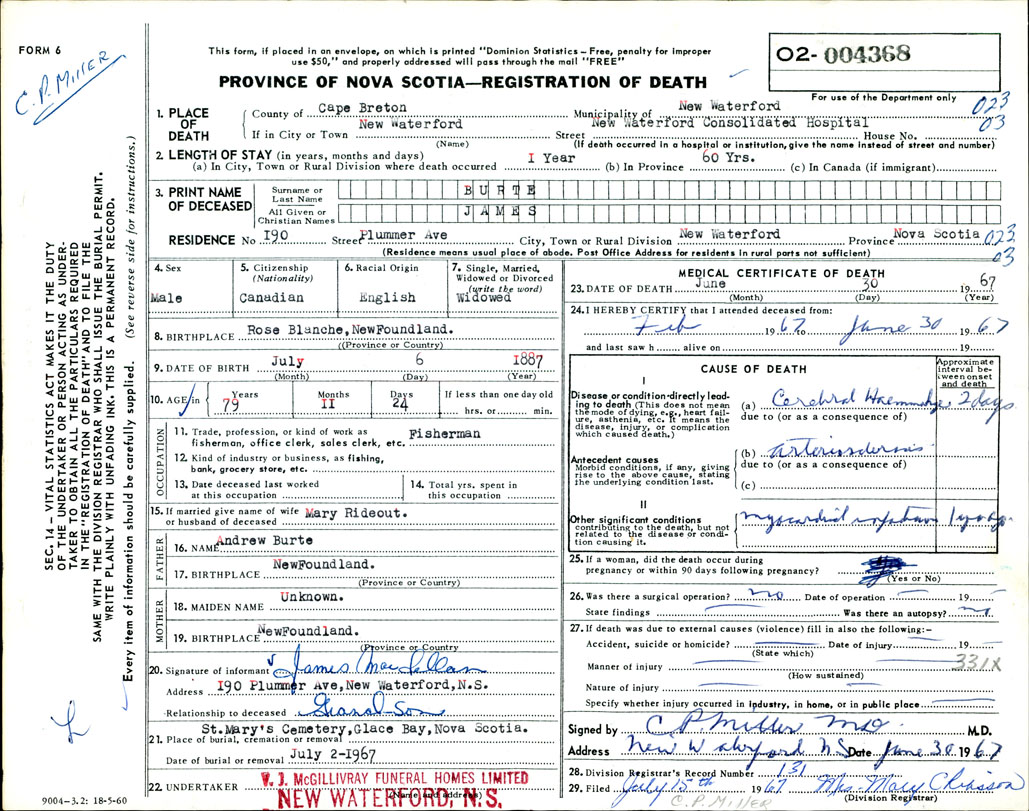 FORM 6
C.P. Miller
This form, if placed in an envelope, on which is printed "Dominion Statistics – Free, penalty for improper
use $50," and properly addressed will pass through the mail "FREE"
PROVINCE OF NOVA SCOTIA—REGISTRATION OF DEATH
02- 004368
For use of the Department only
023
03
1. PLACE OF DEATH
County of Cape Breton Municipality of New Waterford
If in City or Town New Waterford Street New Waterford Consolidated Hospital House No.
(Name) (If death occurred in a hospital or institution, give the name instead of street and number)
2. LENGTH OF STAY (in years, months and days)
(a) In City, Town or Rural Division where death occurred I Year (b) In Province 60 Yrs. (c) In Canada (if immigrant)
3. PRINT NAME OF DECEASED
Surname or Last Name BURTE
All Given or Christian Names JAMES
RESIDENCE No I90 Street Plummer Ave City, Town or Rural Division New Waterford Province Nova Scotia
023
03
(Residence means usual place of abode. Post Office Address for residents in rural parts not sufficient)
4. Sex
Male
5. Citizenship (Nationality)
Canadian
6. Racial Origin
English
7. Single, Married, Widowed or Divorced (write the word)
Widowed
8. BIRTHPLACE Rose Blanche, NewFoundland.
((Province or Country)
9. DATE OF BIRTH July 6 1887
(Month) (Day) (Year)
10. AGE in Years 79 Months II Days 24 If less than one day old
hrs. or min.
OCCUPATION
11. Trade, profession, or kind of work as
fisherman, office clerk, sales clerk, etc. Fisherman
12. Kind of industry or business, as fishing,
bank, grocery store, etc.
13. Date deceased last worked
at this occupation
14. Total yrs. spent in
this occupation
15. If married give name of wife
or husband of deceased Mary Rideout.
FATHER
16. NAME Andrew Burte
17. BIRTHPLACE NewFoundland.
(Province or Country)
MOTHER
18. MAIDEN NAME Unknown.
19. BIRTHPLACE NewFoundland.
(Province or Country
20. Signature of informant James MacLellan
Address I90 Plummer Ave, New Waterford, N.S.
Relationship to deceased Grand-Son
St. Mary's Cemetery, Glace Bay, Nova Scotia.
21. Place of burial, cremation or removal
Date of burial or removal July 2-1967
22. UNDERTAKER W. J. McGILLIVRAY FUNERAL HOMES LIMITED
NEW WATERFORD, N.S.
(Name and address)
MEDICAL CERTIFICATE OF DEATH
23. DATE OF DEATH June 30 1967
(Month) (Day) (Year)
24. I HEREBY CERTIFY that I attended deceased from:
Feb 1967 June 30 1967
and last saw h alive on 19
CAUSE OF DEATH
Approximate interval between onset and death
I
Disease or condition directly leading to death (This does not mean
the mode of dying, e.g., heart failure, asthenia, etc. It means the
disease, injury, or complication
which caused death.)
(a) Cerebral Haemorrhage 2 days
due to (or as a consequence of)
Antecedent causes
Morbid conditions, if any, giving
rise to the above cause, stating
the underlying condition last.
(b) arteriosclerosis
due to (or as a consequence of)
(c)
II
Other significant conditions
contributing to the death, but not
related to the disease or condition causing it.
myocardial infarction 1 yr ago
25. If a woman, did the death occur during
pregnancy or within 90 days following pregnancy?
(Yes or No)
26. Was there a surgical operation? no Date of operation 19
State findings Was there an autopsy? no
27. If death was due to external causes (violence) fill in also the following:–
Accident, suicide or homicide? Date of injury 19
(State which)
331X
Manner of injury
(How sustained)
Nature of injury
Specify whether injury occurred in industry, in home, or in public place
Signed by C P Miller MD M.D.
Address New Waterford NS Date June 30 1967
28. Division Registrar's Record Number 131
29. Filed July 15th 1967 Mrs. Mary Chiasson
(Division Registrar)
C.P. Miller
SEC. 14 – VITAL STATISTICS ACT MAKES IT THE DUTY
OF THE UNDERTAKER OR PERSON ACTING AS UNDERTAKER TO OBTAIN ALL THE PARTICULARS REQUIRED
IN THE "REGISTRATION OF DEATH" AND TO FILE THE
SAME WITH THE DIVISION REGISTRAR WHO SHALL ISSUE THE BURIAL PERMIT.
WRITE PLAINLY WITH UNFADING INK. THIS IS A PERMANENT RECORD.
Every item of information should be carefully supplied. (See reverse side for instructions.)
9004–3.2: 18-5-60